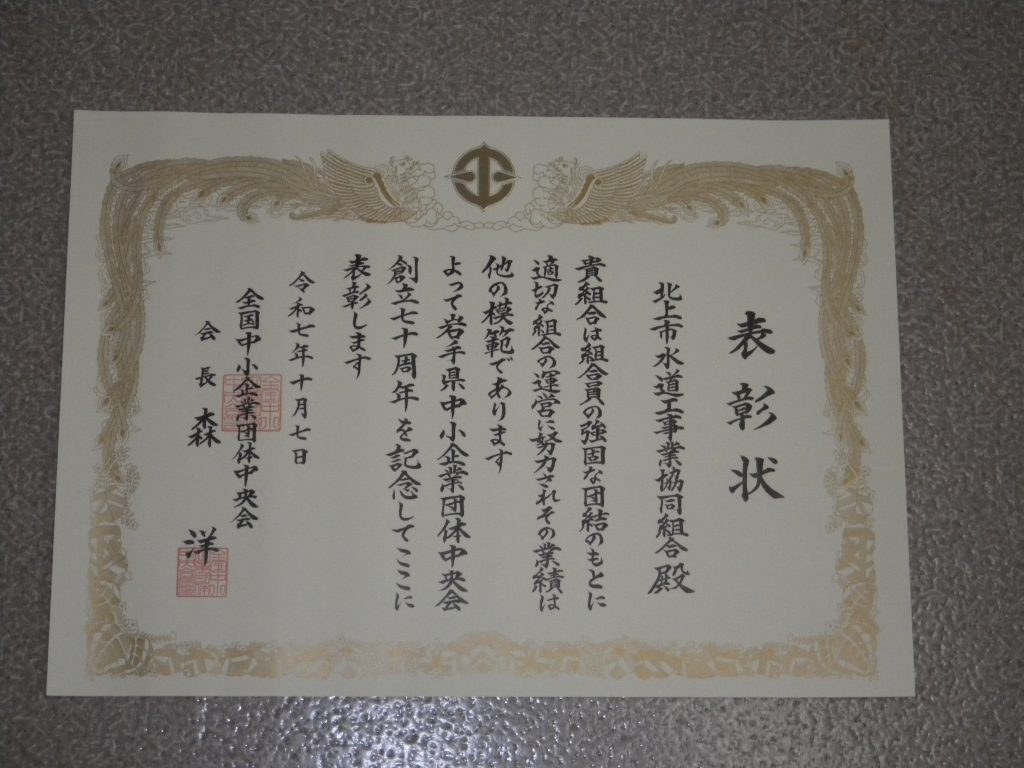 表彰状
北上市水道工事業協同組合殿
貴組合は組合員の強固な団結のもとに
適切な組合の運営に努力されその業績は
他の模範であります
よって岩手県中小企業団体中央会
創立七十周年を記念してここに
表彰します
令和七年十月七日
全国中小企業団体中央会
会長 森 洋